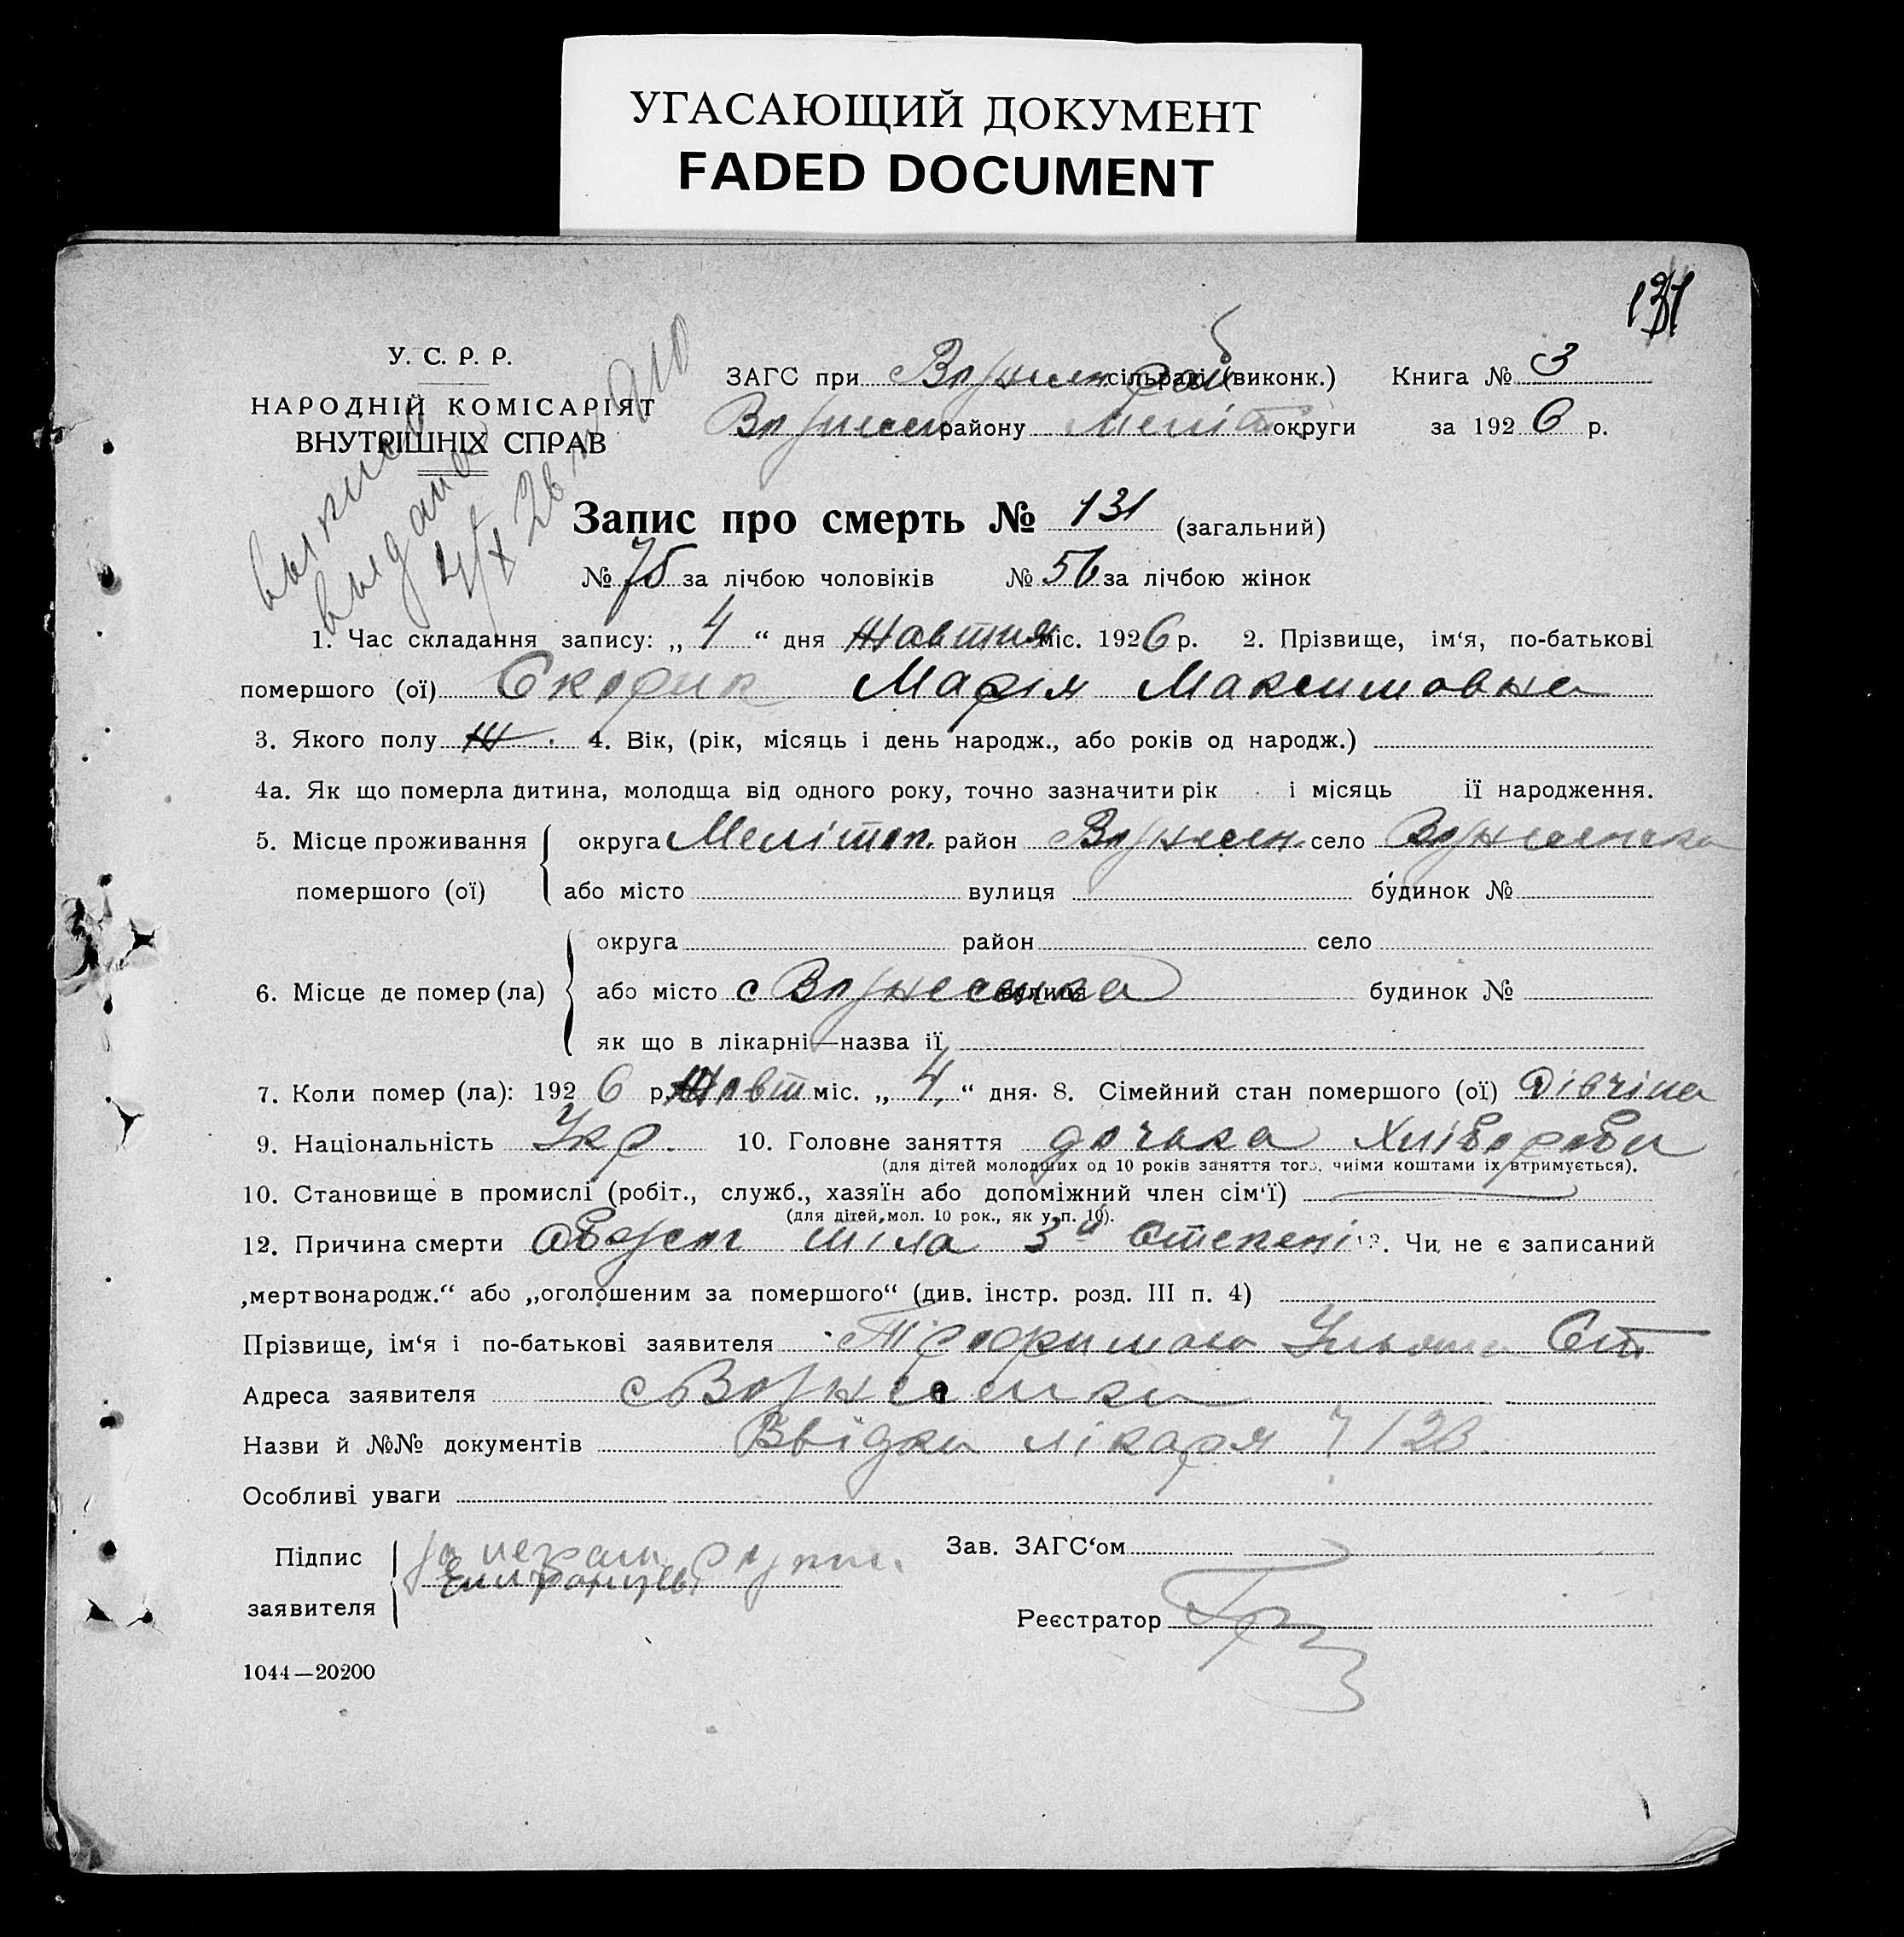 УГАСАЮЩИЙ ДОКУМЕНТ
FADED DOCUMENT
131
У. С. Р. Р.
НАРОДНІЙ КОМІСАРІЯТ
ВНУТРІШНІХ СПРАВ
ЗАГС при Вознесен сільраді (виконк.) Книга № 3
Вознесен району Меліт округи за 1926 р.
Запис про смерть № 131 (загальний)
№ 75 за лічбою чоловіків № 56 за лічбою жінок
1. Час складання запису: „ 4 “ дня Жовтня міс. 1926 р. 2. Прізвище, ім'я, по-батькові
помершого (ої) Скорик Марія Максимовна
3. Якого полу Ж. 4. Вік, (рік, місяць і день народж., або років од народж.)
4а. Як що померла дитина, молодща від одного року, точно зазначити рік і місяць її народження.
5. Місце проживання округа Мелітоп. район Вознесен. село Вознесенска
помершого (ої) або місто вулиця будинок №
округа район село
6. Місце де помер (ла) або місто с Вознесенка вулиця будинок №
як що в лікарні—назва її
7. Коли помер (ла): 1926 р. Жовт міс. „ 4. “ дня. 8. Сімейний стан помершого (ої) Дівчина
9. Національність Укр. 10. Головне заняття дочка Хлібороба
(для дітей молодших од 10 років заняття того, чиїми коштами їх втримується).
10. Становище в промислі (робіт., служб., хазяїн або допоміжний член сім'ї)
(для дітей, мол. 10 рок., як у п. 10).
12. Причина смерти Обожог тіла 3й степені 13. Чи не є записаний
„мертвонародж.“ або „оголошеним за помершого“ (див. інстр. розд. III п. 4)
Прізвище, ім'я і по-батькові заявителя
Адреса заявителя с Вознесенка
Назви й №№ документів Ввідка лікаря
Особливі уваги
Підпис за неграм.
заявителя
Зав. ЗАГС'ом
Реєстратор
1044—20200